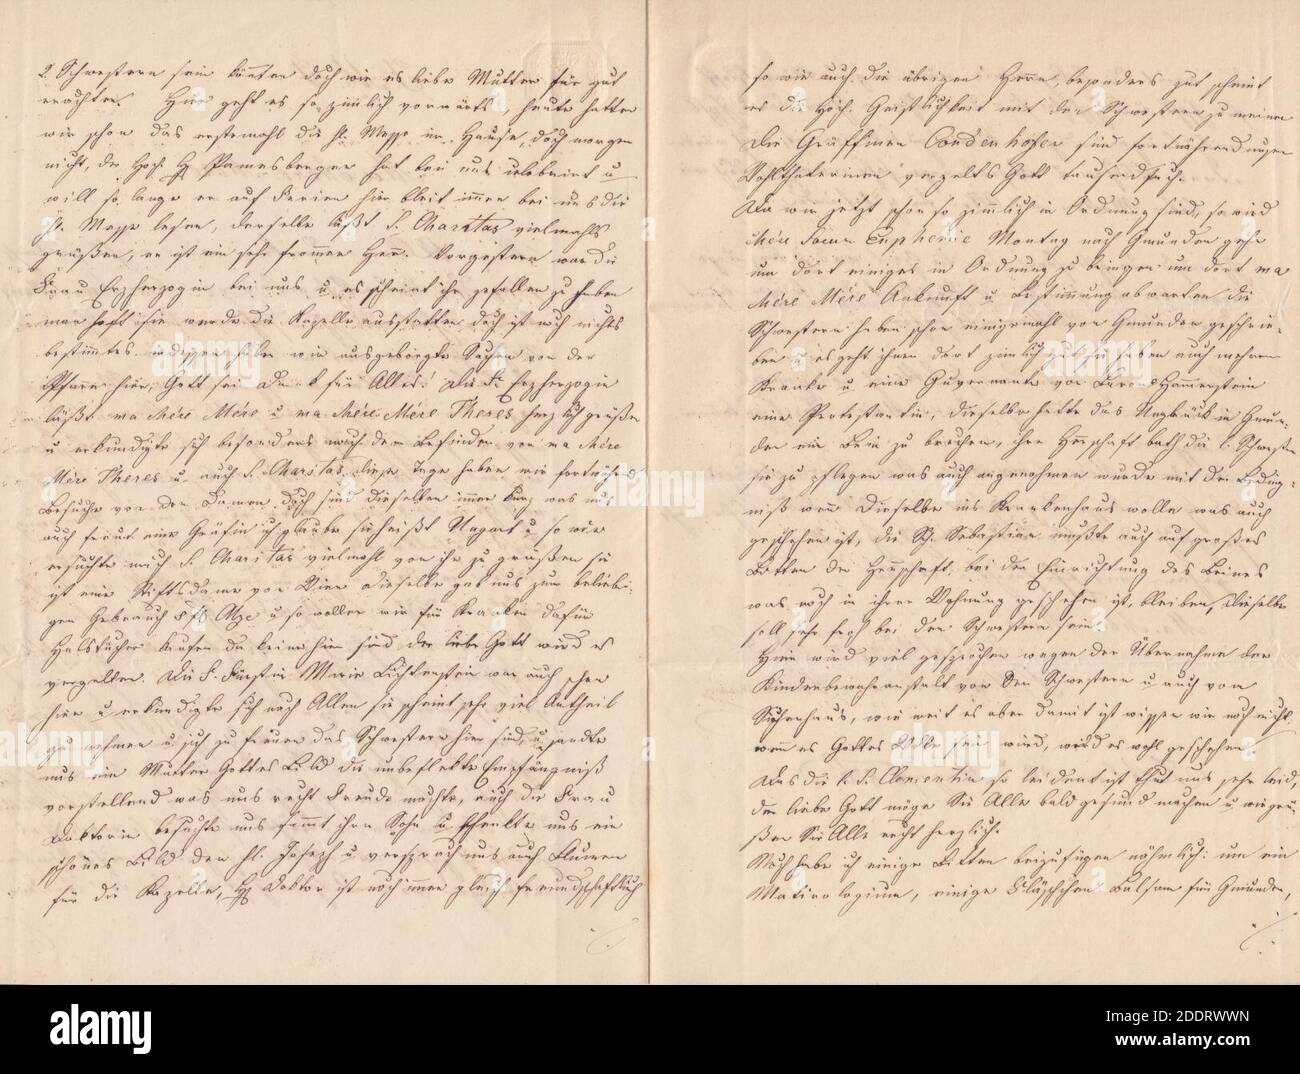 2 Schwestern sein könnten doch wie es liebe Mutter für gut
erachten. Hier geht es so ziemlich vorwärts, heute hatten
wir schon das erstemahl die hl. Messe im Hause, doch morgen
nicht, der Hoch. H. hat bei uns u
will so lange er auf Ferien hier bleibt immer bei uns die
hl. Messe lesen, derselbe läßt S. Charitas vielmahls
grüßen, er ist ein sehr frommer Herr. Vorgestern war die
Frau Erzherzogin bei uns u. es scheint ihr gefallen zu haben
man hofft sie werde die Kapelle ausstatten doch ist noch nichts
bestimmtes. indessen haben wir ausgeborgte Sachen von der
Pfarre hier, Gott sei Dank für Alles! Die Fr. Erzherzogin
läßt ma chére Mére u ma chére Mére Theres herzlich grüßen
u erkundigte sich besonders nach dem Befinden von ma chére
Mére Theres u. auch S. Charitas, diese Tage haben wir fortwährend
Besuche von den Damen doch sind dieselben immer kurz was uns
auch freut eine Gräfin ich glaube sie heißt Ungart u so wie
ersuchte mich S. Charitas vielmahl von ihr zu grüßen sie
ist eine Stiftsdame von Wien dieselbe gab uns zum beliebi-
gen Gebrauch u so wollen wir für Kranken dafür
Halstücher kaufen da keine hier sind der liebe Gott wird es
vergelten. Die F. Fürstin Marie Lichtenstein war auch schon
hier u erkundigte sich nach Allen sie scheint sehr viel Antheil
zu nehmen u sich zu freuen das Schwestern hier sind, u sandte
uns ein Mutter Gottes Bild die unbeflekte Empfängniß
vorstellend was uns recht Freude machte, auch die Frau
Doktorin besuchte uns sammt ihren Sohn u schenkte uns ein
schönes Bild den hl. Joseph u versprach uns auch Blumen
für die Kapelle, H. Doktor ist noch immer gleich freundschaftlich
so wie auch die übrigen Herrn, besonders gut scheint
es die Hoch. Geistlichkeit mit den Schwestern zu meinen
Die Gräffinen Condenhofen sind fortwährend unsere
Wohlthäterinen vergelts Gott tausendfach.
Da wir jetzt schon so ziemlich in Ordnung sind, so wird
chére Soeur Euphemie Montag nach Gmunden gehe
um dort einiges in Ordnung zu bringen um dort ma
chére Mére Ankunft u Bestimmung abwarten die
Schwestern haben schon einigemahl von Gmunden geschrie-
ben u es geht ihnen dort ziemlich gut sie haben auch mehrere
Kranke u eine Guvernante von Baron Hammerstein
eine Protestantin, dieselbe hatte das Unglück in Gmun-
den ein Bein zu brechen, ihre Herschaft bath die l. Schwestern
sie zu pflegen was auch angenohmen wurde mit der Beding-
niß wenn dieselbe ins Krankenhaus wolle was auch
geschehen ist, die S. Sebastian mußte auch auf großes
Bitten der Herrschaft, bei der Einrichtung des Beines
was noch in ihrer Wohnung geschehen ist, bleiben, dieselbe
soll sehr froh bei den Schwestern sein.
Hier wird viel gesprochen wegen der Übernahme der
Kinderbewahranstalt von den Schwestern u auch von
Sichenhaus, wie weit es aber damit ist wissen wir noch nicht,
wenn es Gottes Wille sein wird, wird es wohl geschehen.
Das die l. S. Clementin so leident ist thut uns sehr leid,
der liebe Gott möge Sie Alle bald gesund machen u wir grü-
ßen Sie Alle recht herzlich.
Noch habe ich einige Bitten beizufügen nähmlich: um ein
Matirologium, einige Fläschchen Balsam für Gmunden,
alamy
2DDRWWN
www.alamy.com